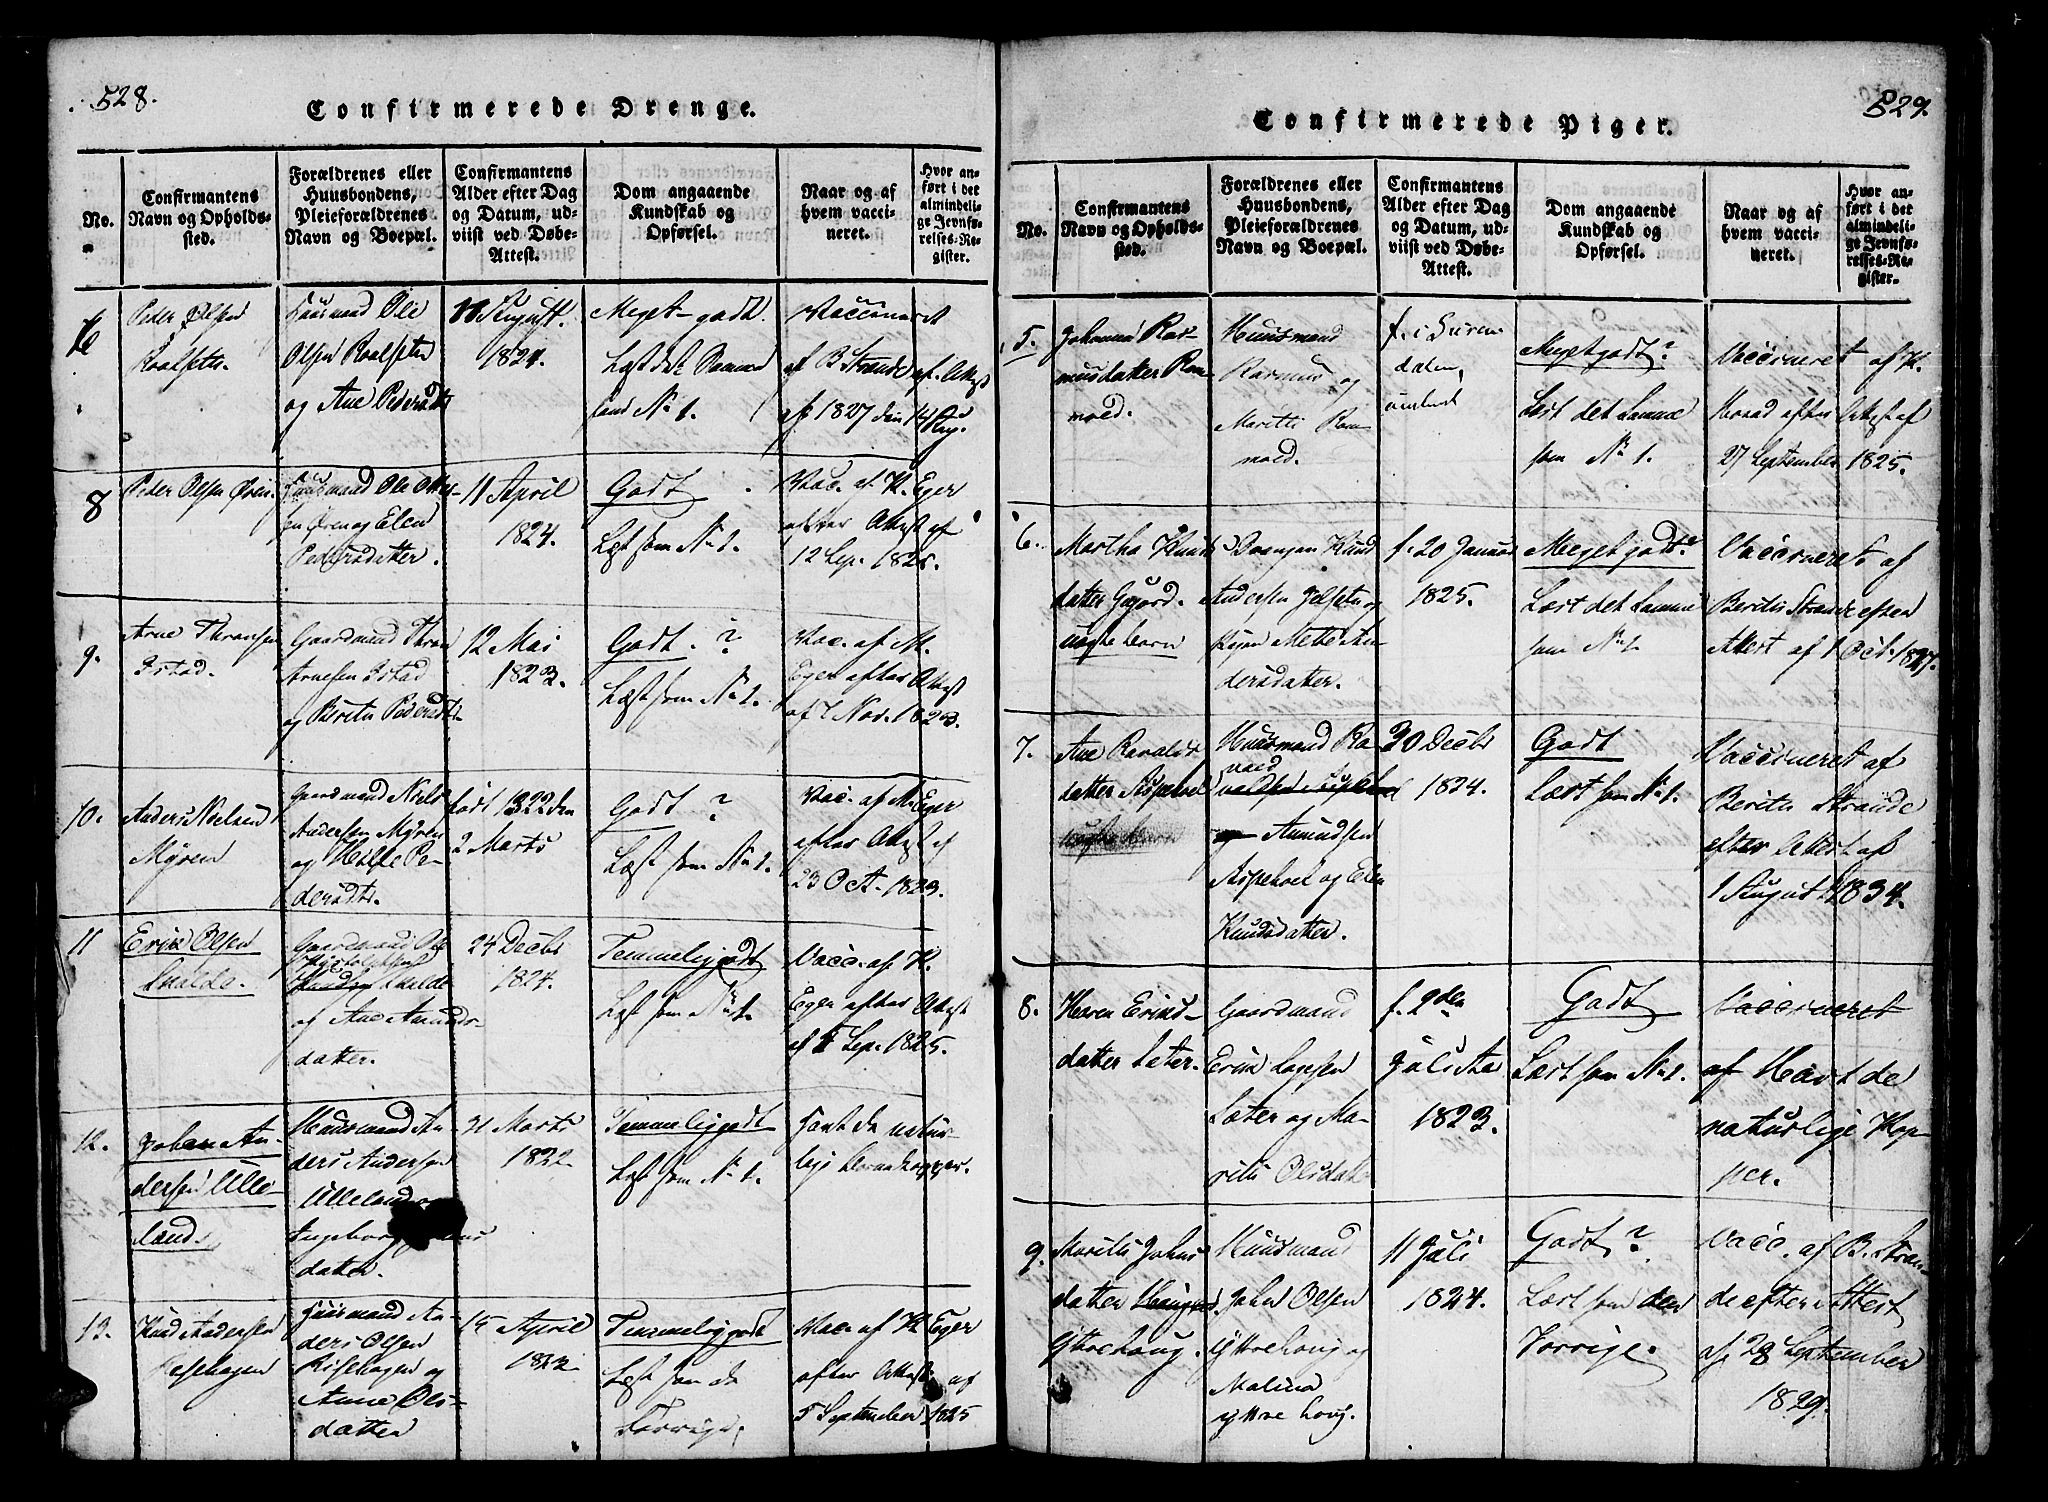 528.
Confirmerede Drenge.
No.
Confirmantens Navn og Opholdssted.
Forældrenes eller Huusbondens, Pleieforældrenes Navn og Boepæl.
Confirmantens Alder efter Dag og Datum, udviist ved Døbe-Attest.
Dom angaaende Kundskab og Opførsel.
Naar og af hvem vaccineret.
Hvor anført i det almindelige Jevnførelses-Register.
Peder Olsen
Huusmand Ole
Olsen Roalseter
og Ane Pedersdtr
August.
1824.
Meget godt.
Læst det Samme
som No 1.
Vaccineret
af B. Strande ef. Attest
af 1827 den 14 Aug.
8
Peder Olsen Øren.
Huusmand Ole
Øren og Elen
Pedersdatter.
11 April
1824.
Godt
Læst som No 1.
Vac. af K. Eger
efter Attest af
12 Sep. 1825.
9.
Arne Thronsen
Istad.
Gaardmand Thron
Arnesen Istad
og Berite Pedersdtr
12 Mai
1823.
Godt. ?
Læst som No 1.
Vac. af K.
Eger efter Attest
af 1 Nov. 1823.
10.
Anders Nielsen
Myren
Gaardmand Niels
Andersen Myren
og Pedersdtr.
født 1822 den
2 Marts
Godt ?
Læst som No 1.
Vac. af K. Eger
efter Attest af
23 Oct. 1823.
11
Erik Olsen
Gaardmand Ole
og Ane Amunds-
datter.
24 Decbr
1824.
Temmelig godt
Læst som No 1.
Vacc. af K.
Eger efter Attest
af Sep. 1825.
12.
Johan An-
dersen Ulle-
land.
Huusmand An-
ders Andersen
Ulleland og
Ingeborg
datter.
21 Marts
1822
Temmelig godt
Læst som No 1.
havt de natur-
lige
13.
Knud Andersen
Huusmand An-
ders Olsen
og
Anne Ols-
datter
15 April
Temmelig godt
Læst som de
Forrige.
Vac. af K. Eger
efter Attest af
5 September 1825
529.
Confirmerede Piger.
No.
Confirmantens Navn og Opholdssted.
Forældrenes eller Huusbondens, Pleieforældrenes Navn og Boepæl.
Confirmantens Alder efter Dag og Datum, udviist ved Døbe-Attest.
Dom angaaende Kundskab og Opførsel.
Naar og af hvem vaccineret.
Hvor anført i det almindelige Jevnførelses-Register.
5.
Johanne Ras-
musdatter Ram-
moed.
Huusmand
Rasmus og
Marithe Ram-
moed.
f. i Suren-
dalen,
Meget godt?
Læst det Samme
som No 1.
Vaccineret af K.
efter Attest af
27 September 1825.
6.
Martha Knuds-
datter
uægte barn
Knud
Andersen Jelseth og
Pigen Mette An-
dersdatter.
f. 20 Januar
1825.
Meget godt?
Læst det Samme
som No 1.
Vaccineret af
Berite Strande efter
Attest af 1 Oct. 1827.
7.
Ane Ravalds-
datter Aspehoel
Huusmand Ra-
vald
Amundsen
Aspehoel og Elen
Knudsdatter.
30 Decbr
1824.
Godt
Læst som No 1.
Vaccineret af
Berite Strande
efter Attest af
1 August 1834.
8.
Karen Eriks-
datter Sæter.
Gaardmand
Erik
Sæter og Ma-
rithe Olsdatter
f. 2den
Juli
1823.
Godt
Læst som No 1.
Vaccineret
af Havt de
naturlige Kop-
per.
9.
Marithe Johns-
datter
Yttrehoug.
Huusmand
John Olsen
Yttrehoug og
Malina
Yttrehoug.
11 Juli
1824.
Godt ?
Læst som den
Forrige.
Vacc. af B. Stran-
de efter Attest
af 28 September
1829.